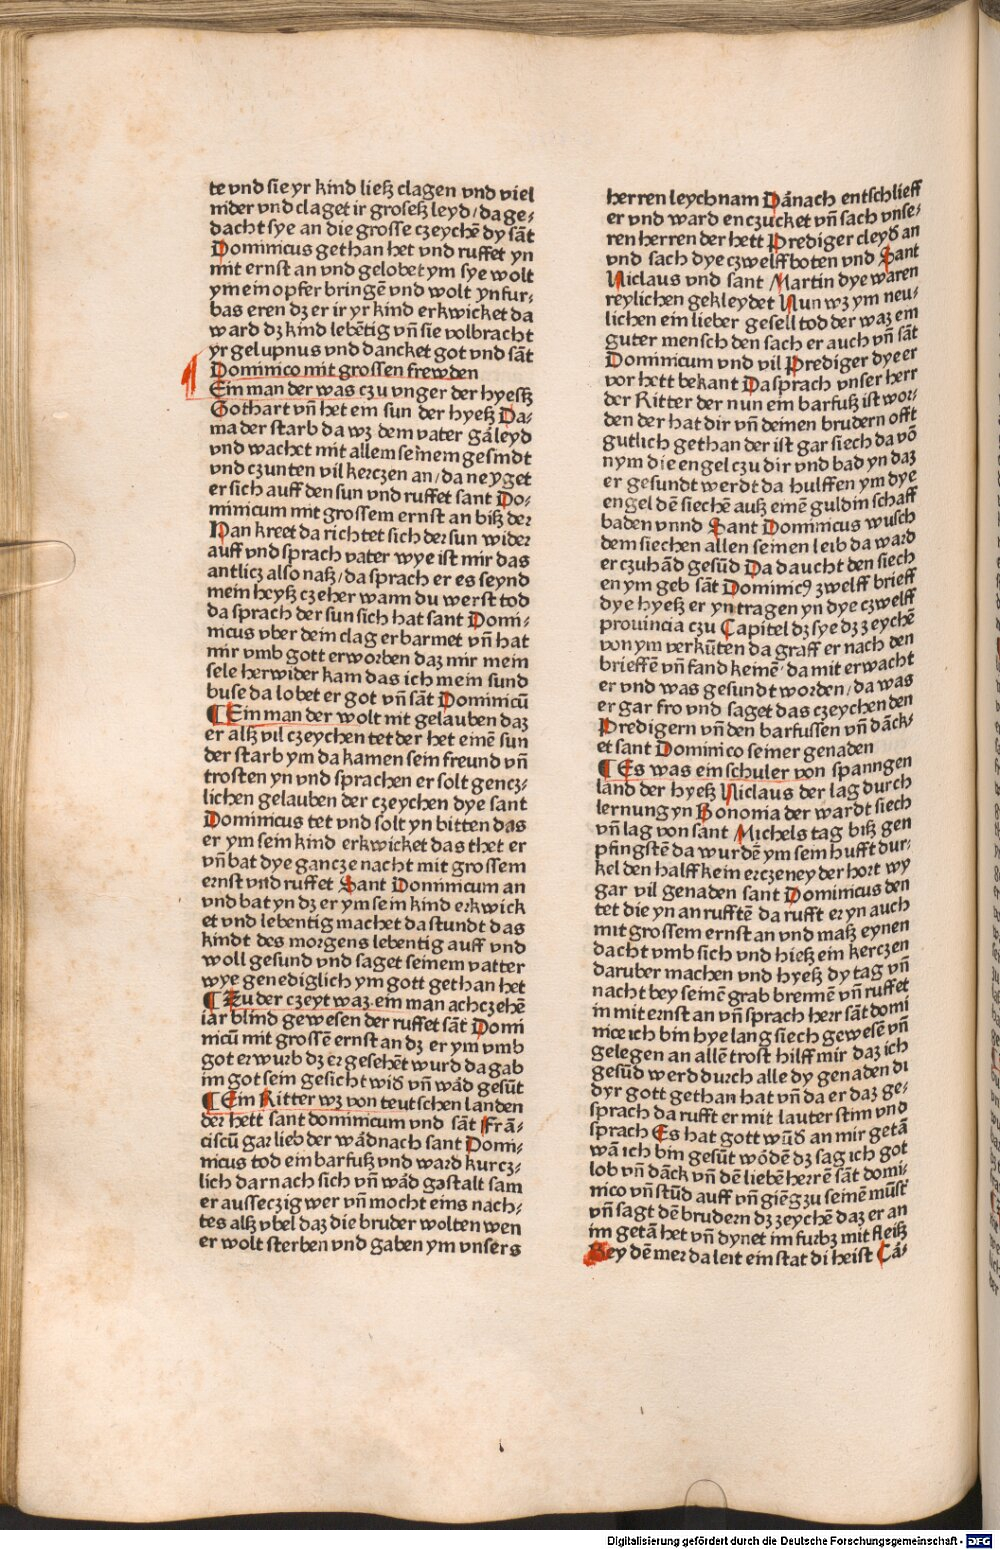 te vnd sie yr kind ließ clagen vnd viel
nider vnd claget ir groseß leyd / da ge⸗
dacht sye an die grosse czeychē dy sāt
Dominicus gethan het vnd ruffet yn
mit ernst an vnd gelobet ym sye wolt
ym ein opfer bringē vnd wolt yn fur⸗
bas eren dz er ir yr kind erkwicket da
ward dz kind lebētig vñ sie volbracht
yr gelupnus vnd dancket got vnd sāt
Dominico mit grossen frewden
Ein man der was czu vnger der hyesß
Gothart vñ het em sun der hyeß Da⸗
ma der starb da wz dem vater gā leyd
vnd wachet mit allem seinem gesindt
vnd czunten vil kerczen an / da neyget
er sich auff den sun vnd ruffet sant Do⸗
minicum mit grossem ernst an biß der
Han kreet da richtet sich der sun wider
auff vnd sprach vater wye ist mir das
antlicz also naß / da sprach er es seynd
mein heyß czeher wann du werst tod
da sprach der sun sich hat sant Domi⸗
nicus vber dein clag erbarmet vñ hat
mir vmb gott erworben daz mir mein
sele herwider kam das ich mein sund
buse da lobet er got vñ sāt Dominicū
¶ Ein man der wolt nit gelauben daz
er alß vil czeychen tet der het einē sun
der starb ym da kamen sein freund vñ
trosten yn vnd sprachen er solt gencz⸗
lichen gelauben der czeychen dye sant
Dominicus tet vnd solt yn bitten das
er ym sein kind erkwicket das thet er
vñ bat dye gancze nacht mit grossem
ernst vnd ruffet Sant Dominicum an
vnd bat yn dz er ym sein kind erkwick
et vnd lebentig machet da stundt das
kindt des morgens lebentig auff vnd
woll gesund vnd saget seinem vatter
wye genediglich ym gott gethan het
¶ Zu der czeyt waz ein man achczehē
iar blind gewesen der ruffet sāt Domi
nicū mit grossē ernst an dz er ym vmb
got erwurb dz er gesehēt wurd da gab
im got sein gesicht wid̄ vñ wād gesūt
¶ Ein Ritter wz von teutschen landen
der hett sant dominicum vnd sāt Frā⸗
ciscū gar lieb der wād nach sant Domi⸗
nicus tod ein barfuß vnd ward kurcz⸗
lich darnach sich vñ wād gestalt sam
er ausseczig wer vñ mocht eins nach⸗
tes alß vbel daz die bruder wolten wen
er wolt sterben vnd gaben ym vnsers
herren leychnam Dānach entschlieff
er vnd ward enczucket vñ sach vnse⸗
ren herren der hett Prediger cleyd̄ an
vnd sach dye czwelffboten vnd Sant
Niclaus vnd sant Martin dye waren
reylichen gekleydet Nun wz ym neu⸗
lichen ein lieber gesell tod der waz em
guter mensch den sach er auch vñ sāt
Dominicum vnd vil Prediger dye er
vor hett bekant Da sprach vnser herr
der Ritter der nun ein barfuß ist wor⸗
den der hat dir vñ deinen brudern offt
gutlich gethan der ist gar siech da vō
nym die engel czu dir vnd bad yn daz
er gesundt werdt da hulffen ym dye
engel dē siechē auß einē guldin schaff
baden vnnd Sant Dominicus wusch
dem siechen allen seinen leib da ward
er czuhād gesūd Da daucht den siech
en ym geb sāt Dominicꝰ zwelff brieff
dye hyeß er yn tragen yn dye czwelff
prouincia czu Capitel dz sye dz zeychē
von ym verkūten da graff er nach den
brieffē vñ fand keinē da mit erwacht
er vnd was gesundt worden / da was
er gar fro vnd saget das czeychen den
Predigern vñ den barfussen vñ dāck⸗
et sant Dominico seiner genaden
¶ Es was ein schuler von spanngen
land der hyeß Niclaus der lag durch
lernung yn Bononia der wardt siech
vñ lag von sant Michels tag biß gen
pfingstē da wurdē ym sein hufft dur⸗
kel den halff kein erczeney der hort wy
gar vil genaden sant Dominicus den
tet die yn an rufftē da rufft er yn auch
mit grossem ernst an vnd maß eynen
dacht vmb sich vnd hieß ein kerczen
daruber machen vnd hyeß dy tag vñ
nacht bey seinē grab brennē vñ ruffet
in mit ernst an vñ sprach herr sāt domi
nice ich bin hye lang siech gewesē vñ
gelegen an allē trost hilff mir daz ich
gesūd werd durch alle dy genaden di
dyr gott gethan hat vñ da er daz ge⸗
sprach da rufft er mit lauter stim vnd
sprach Es hat gott wūd̄ an mir getā
wā ich bin gesūt wōdē dz sag ich got
lob vñ dāck vñ dē liebē herrē sāt domi⸗
nico vñ stūd auff vñ giēg zu seinē mūst̄
vñ sagt dē brudern dz zeychē daz er an
im getā het vñ dynet im furbz mit fleiß
Bey dē mer da leit ein stat di heist Cā⸗
Digitalisierung gefördert durch die Deutsche Forschungsgemeinschaft - DFG